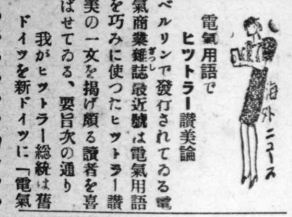 海外ニュース
電氣用語で
ヒツトラー讃美論
ベルリンで發行されてゐる電
氣商業雜誌最近號は電氣用語
を巧みに使つたヒツトラー讃
美の一文を揭げ頗る讀者を喜
ばせてゐる、要旨次の通り
我がヒツトラー總統は舊
ドイツを新ドイツに「電氣